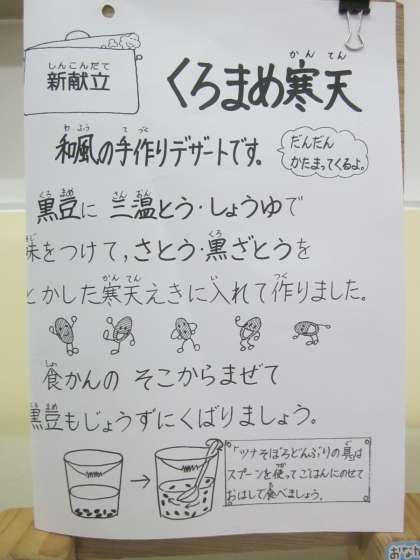 しんこんだて
新献立
くろまめ寒天
かんてん
和風の手作りデザートです。
わふう
てづく
だんだん
かたまってくるよ。
黒豆に三温とう・しょうゆで
くろまめ
さんおん
味をつけて,さとう・黒ざとうを
くろ
とかした寒天えきに入れて作りました。
かんてん
い
つく
食かんの そこからまぜて
しょっ
黒豆もじょうずにくばりましょう。
くろまめ
「ツナそぼろどんぶりの具」は
ぐ
スプーンを使ってごはんにのせて
つか
おはしで食べましょう。
た
おな